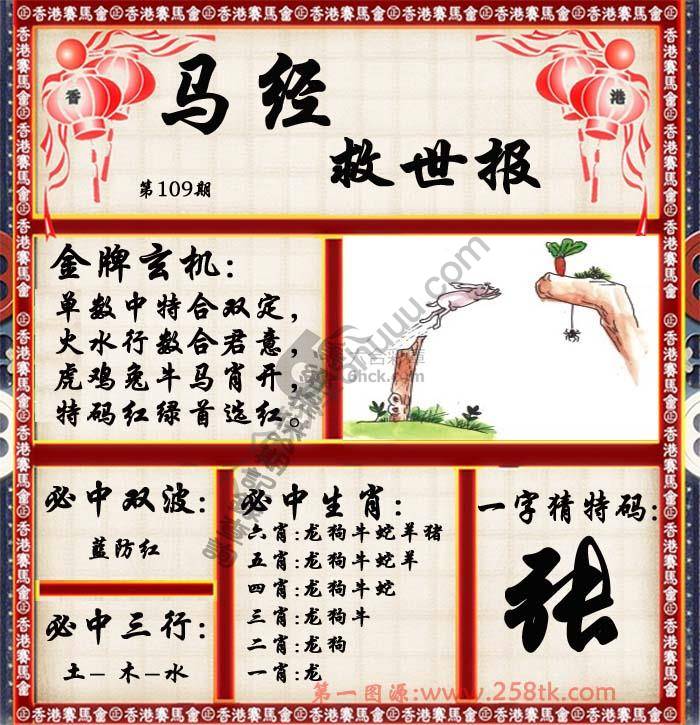 香港賽馬會
香
港
马经
救世报
第109期
金牌玄机:
单数中特合双定,
火水行数合君意,
虎鸡兔牛马肖开,
特码红绿首选红。
必中双波:
蓝防红
必中三行:
土－木－水
必中生肖:
六肖:龙狗牛蛇羊猪
五肖:龙狗牛蛇羊
四肖:龙狗牛蛇
三肖:龙狗牛
二肖:龙狗
一肖:龙
一字猜特码:
张
第一图源:www.258tk.com